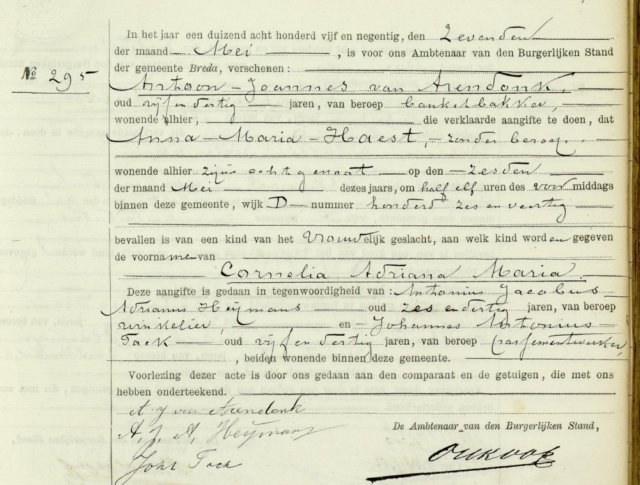 In het jaar een duizend acht honderd vijf en negentig, den Zevenden
der maand Mei, is voor ons Ambtenaar van den Burgerlijken Stand
No 295
der gemeente Breda, verschenen:
Antoon - Joannes van Arendonk,
oud vijf en dertig jaren, van beroep banketbakker,
wonende alhier, die verklaarde aangifte te doen, dat
Anna - Maria - Haest, - zonder beroep
wonende alhier zijne echtgenoot op den zesden
der maand Mei dezes jaars, om half elf uren des voor middags
binnen deze gemeente, wijk D nummer honderd zes en veertig
bevallen is van een kind van het Vrouwelijk geslacht, aan welk kind worden gegeven
de voornamen van
Cornelia Adriana Maria.
Deze aangifte is gedaan in tegenwoordigheid van: Anthonius Jacobus
Adrianus Heijmans oud zes en dertig jaren, van beroep
winkelier, en Johannes Antonius
Tack oud vijf en dertig jaren, van beroep passementwerker,
, beiden wonende binnen deze gemeente.
Voorlezing dezer acte is door ons gedaan aan den comparant en de getuigen, die met ons
hebben onderteekend.
A J van Arendonk
A. J. A. Heijmans
De Ambtenaar van den Burgerlijken Stand,
Johs Tack